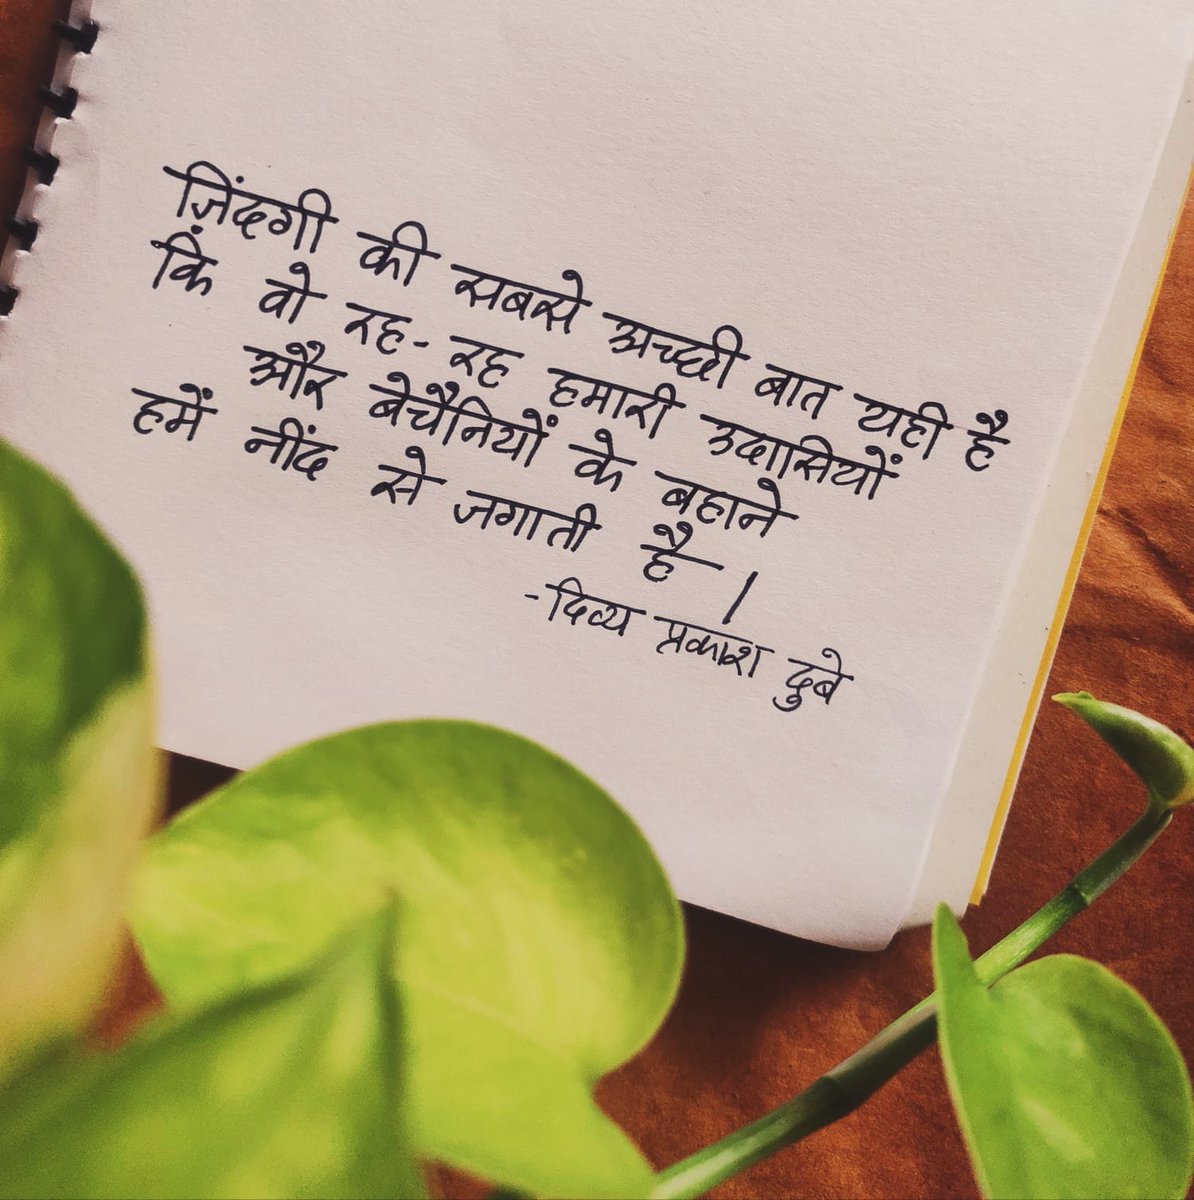 ज़िंदगी की सबसे अच्छी बात यही है
कि वो रह-रह हमारी उदासियों
और बेचैनियों के बहाने
हमें नींद से जगाती है।
-दिव्य प्रकाश दुबे